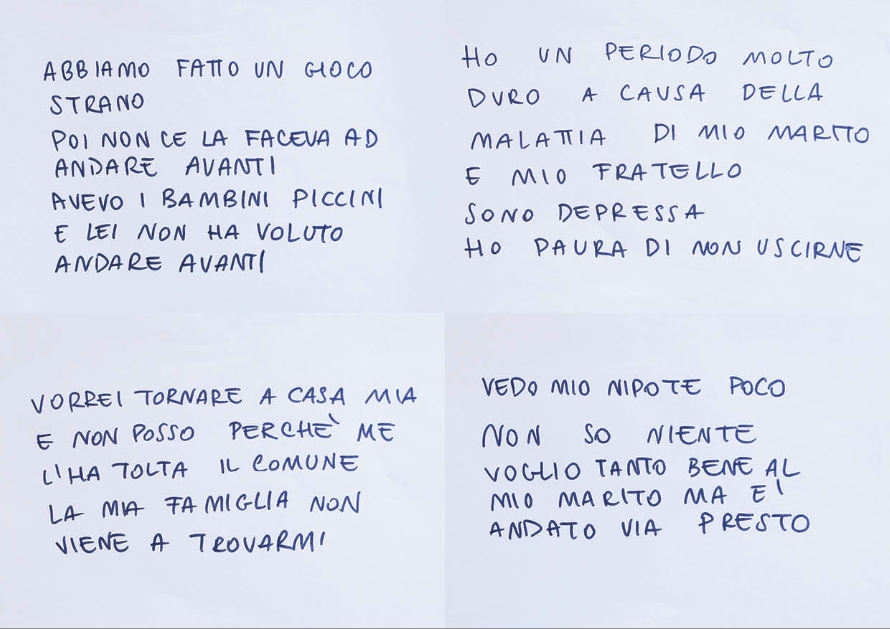 ABBIAMO FATTO UN GIOCO
STRANO
POI NON CE LA FACEVA AD
ANDARE AVANTI
AVEVO I BAMBINI PICCINI
E LEI NON HA VOLUTO
ANDARE AVANTI
HO UN PERIODO MOLTO
DURO A CAUSA DELLA
MALATTIA DI MIO MARITO
E MIO FRATELLO
SONO DEPRESSA
HO PAURA DI NON USCIRNE
VORREI TORNARE A CASA MIA
E NON POSSO PERCHÈ ME
L'HA TOLTA IL COMUNE
LA MIA FAMIGLIA NON
VIENE A TROVARMI
VEDO MIO NIPOTE POCO
NON SO NIENTE
VOGLIO TANTO BENE AL
MIO MARITO MA E'
ANDATO VIA PRESTO